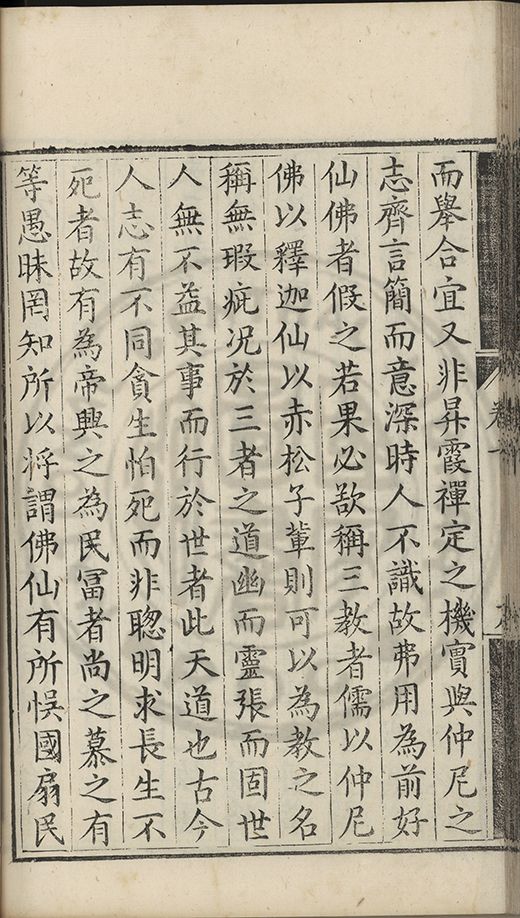 而舉合宜又非昇霞禪定之機實與仲尼之
志齊言簡而意深時人不識故弗用為前好
仙佛者假之若果必欲稱三教者儒以仲尼
佛以釋迦仙以赤松子輩則可以為教之名
稱無瑕疵况於三者之道幽而靈張而固世
人無不益其事而行於世者此天道也古今
人志有不同貪生怕死而非聦明求長生不
死者故有為帝興之為民冨者尚之慕之有
等愚昧罔知所以将謂佛仙有所悞國扇民
卷一